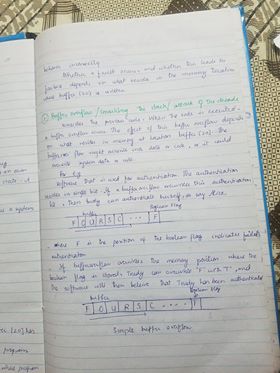 behave incorrectly
Whether a fault occurs and whether this leads to
failure depends on what resides in the memory location
where buffer [20] is written.
Buffer overflow / smashing the stack / attack of the decade
considers the previous code. When the code is executed
a buffer overflow occurs. The effect of this buffer overflow depends
on what resides in memory at location buffer [20]. The
buffer overflow might overwrite user data or code, or it could
overwrite system data or code.
For eg
software that is used for authentication. The authentication
resides in single bit. If a buffer overflow overwrites this authentication
bit, then Trudy can authenticate herself as say Alice
buffer
Boolean Flag
F O U R S C ... F
where F is the position of the boolean flag indicates failed
authentication
If buffer overflow overwrites the memory position where the
boolean flag is stored, Trudy can overwrite 'F' with 'T', and
the software will then believe that Trudy has been authenticated
buffer
Boolean Flag
F O U R S C ...
Simple buffer overflow
a system
[20] has
program